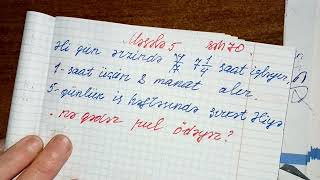 Məsələ 5 səh 70.
Əli gün ərzində 7 1/4 saat işləyir.
1 - saat üçün 2 manat alır.
5-günlük iş həftəsində şirkət Əliyə
nə qədər pul ödəyər?